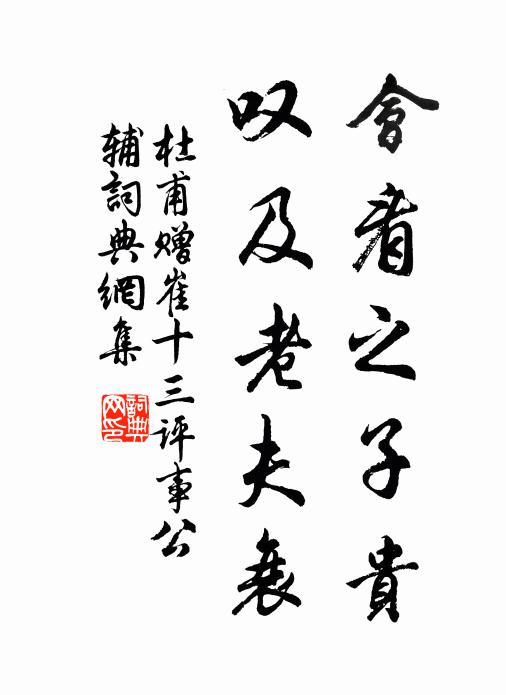 會看之子貴
叹及老夫衰
杜甫赠崔十三评事公
辅詞典網集
詞典
网印